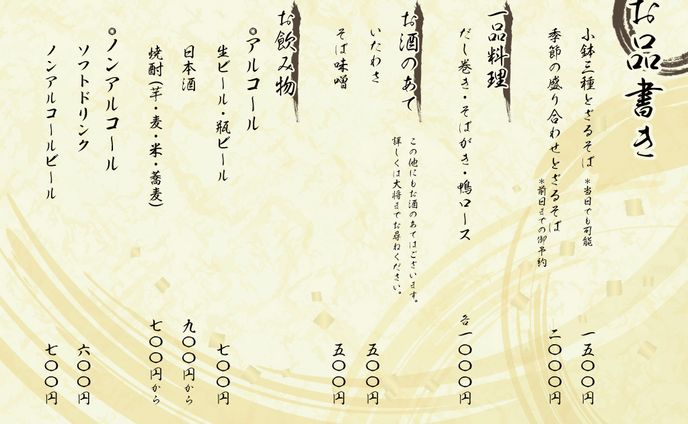 お品書き
小鉢三種とざるそば *当日でも可能 一五〇〇円
季節の盛り合わせとざるそば *前日までの御予約 二〇〇〇円
一品料理
だし巻き・そばがき・鴨ロース 各一〇〇〇円
お酒のあて
この他にもお酒のあてはございます。
詳しくは大将までお尋ねください。
いたわさ 五〇〇円
そば味噌 五〇〇円
お飲み物
◎アルコール
生ビール・瓶ビール 七〇〇円
日本酒 九〇〇円から
焼酎(芋・麦・米・蕎麦) 七〇〇円から
◎ノンアルコール
ソフトドリンク 六〇〇円
ノンアルコールビール 七〇〇円